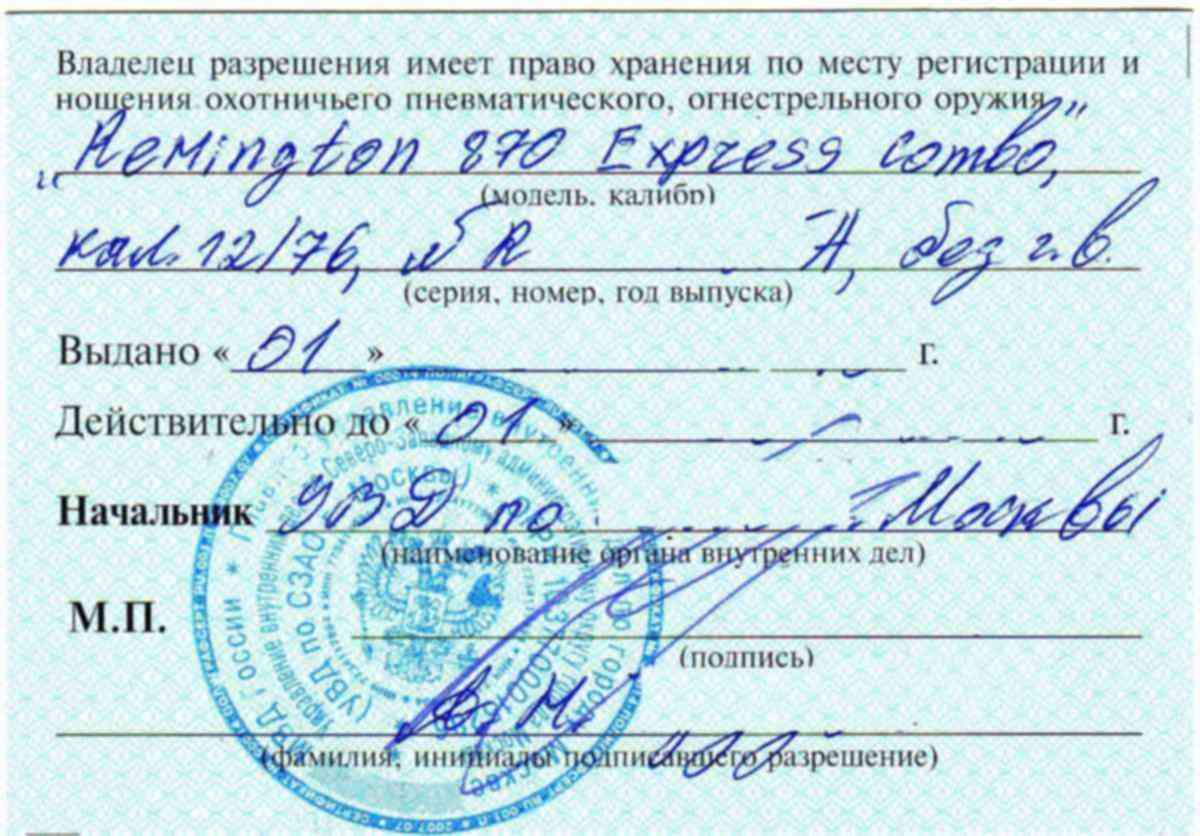 Владелец разрешения имеет право хранения по месту регистрации и
ношения охотничьего пневматического, огнестрельного оружия
"Remington 870 Express Combo",
(модель, калибр)
кал. 12/76, № R А, без г.в.
(серия, номер, год выпуска)
Выдано « 01 » г.
Действительно до « 01 » г.
Начальник УВД по Москвы
(наименование органа внутренних дел)
М.П.
(подпись)
(фамилия, инициалы подписавшего разрешение)
МВД России
(УВД по СЗАО Москвы)